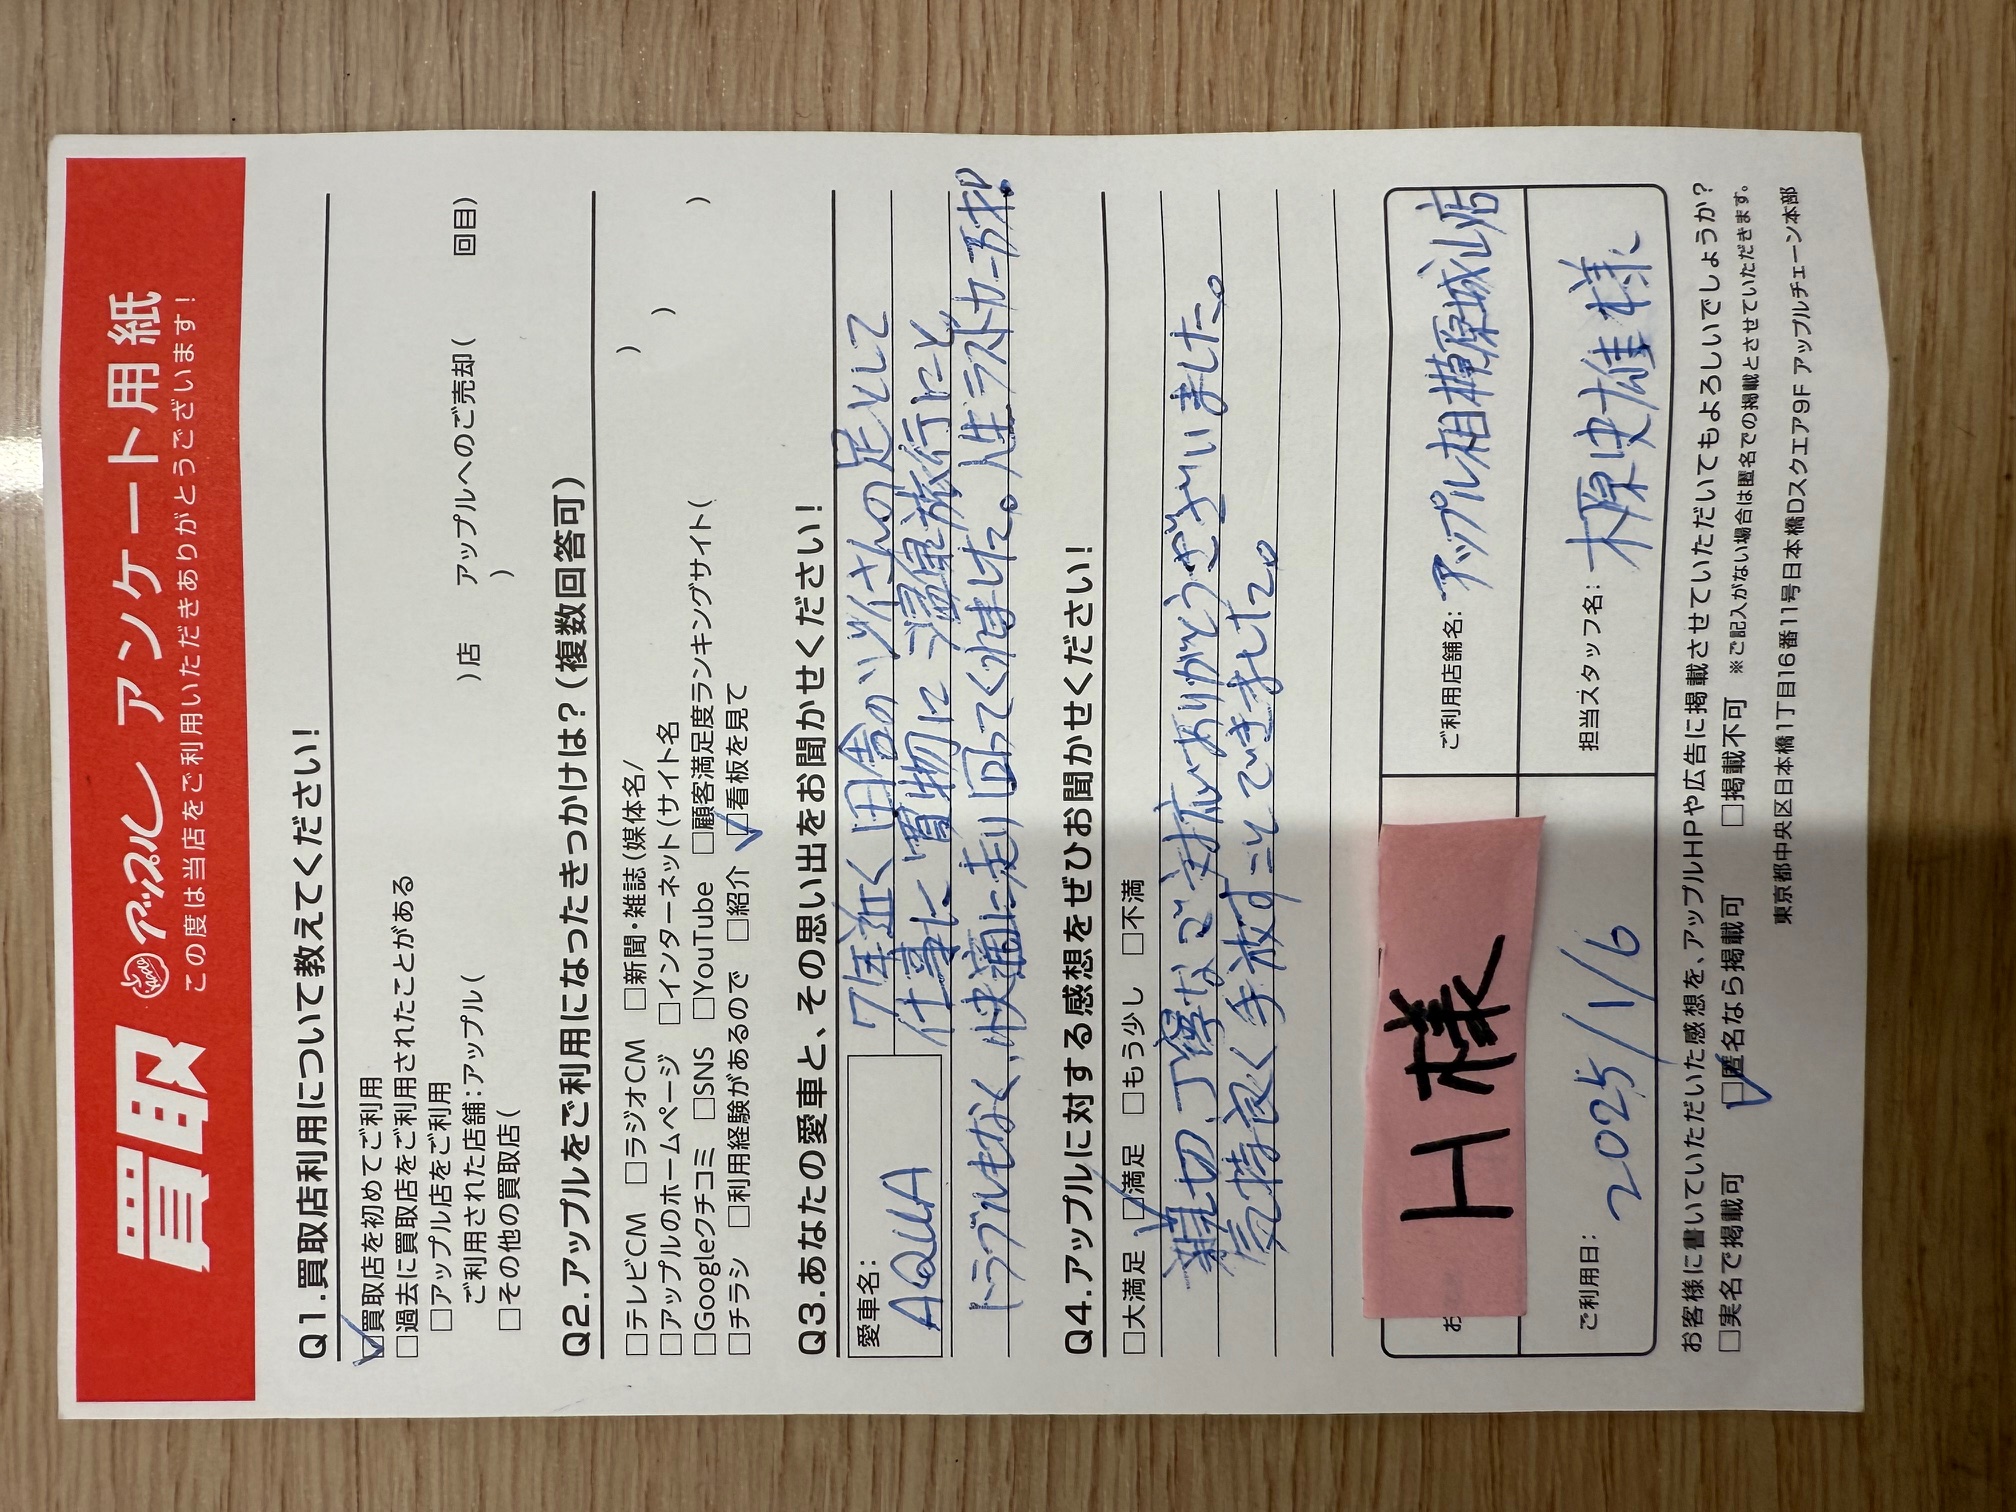 買取 アップル アンケート用紙
この度は当店をご利用いただきありがとうございます!
Q1.買取店利用について教えてください!
☑買取店を初めてご利用
□過去に買取店をご利用されたことがある
□アップル店をご利用
ご利用された店舗:アップル( )店 アップルへのご売却( 回目)
□その他の買取店( )
Q2.アップルをご利用になったきっかけは?(複数回答可)
□テレビCM □ラジオCM □新聞・雑誌(媒体名/ )
□アップルのホームページ □インターネット(サイト名 )
□Googleクチコミ □SNS □YouTube □顧客満足度ランキングサイト( )
□チラシ □利用経験があるので □紹介 ☑看板を見て
Q3.あなたの愛車と、その思い出をお聞かせください!
愛車名:
AQUA
7年近く田舎のジイさんの足として
仕事に買物に温泉旅行にと
トラブルもなく、快適に走り回ってくれました。人生ラストカー
Q4.アップルに対する感想をぜひお聞かせください!
□大満足 ☑満足 □もう少し □不満
親切、丁寧なご対応ありがとうございました。
気持良く手放すことできました。
お
H様
ご利用店舗名: アップル相模原城山店
ご利用日: 2025/1/6
担当スタッフ名: 原史雄様
お客様に書いていただいた感想を、アップルHPや広告に掲載させていただいてもよろしいでしょうか?
□実名で掲載可 ☑匿名なら掲載可 □掲載不可 ※ご記入がない場合は匿名での掲載とさせていただきます。
東京都中央区日本橋1丁目16番11号日本橋Dスクエア9F アップルチェーン本部